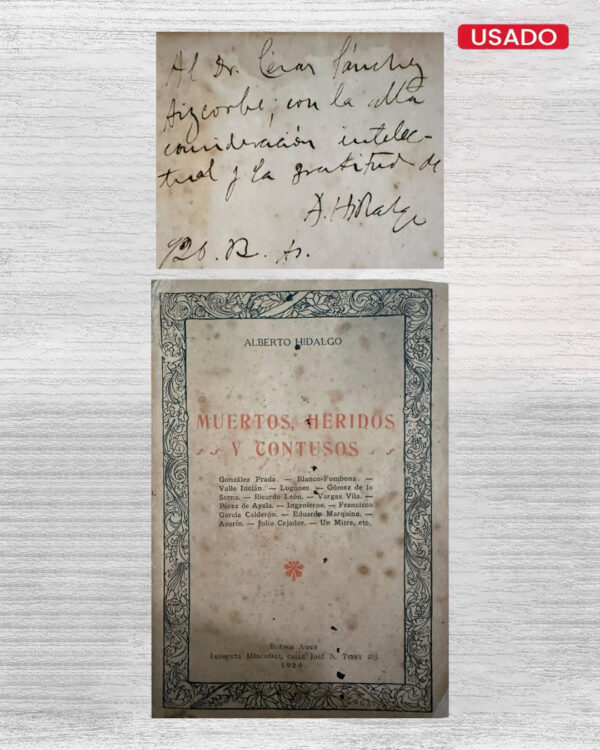 USADO
Al Dr. César Sánchez
Aizcorbe, con la alta
consideración intelec-
tual y la gratitud de
A. Hidalgo
920. B. As.
ALBERTO HIDALGO
MUERTOS, HERIDOS
Y CONTUSOS
González Prada. — Blanco-Fombona. —
Valle Inclán. — Lugones. — Gómez de la
Serna. — Ricardo León. — Vargas Vila. —
Pérez de Ayala. — Ingenieros. — Francisco
García Calderón. — Eduardo Marquina. —
Azorín. — Julio Cejador. — Un Mitre, etc.
BUENOS AIRES
IMPRENTA MERCATALI, CALLE JOSÉ A. TERRY 285
1920